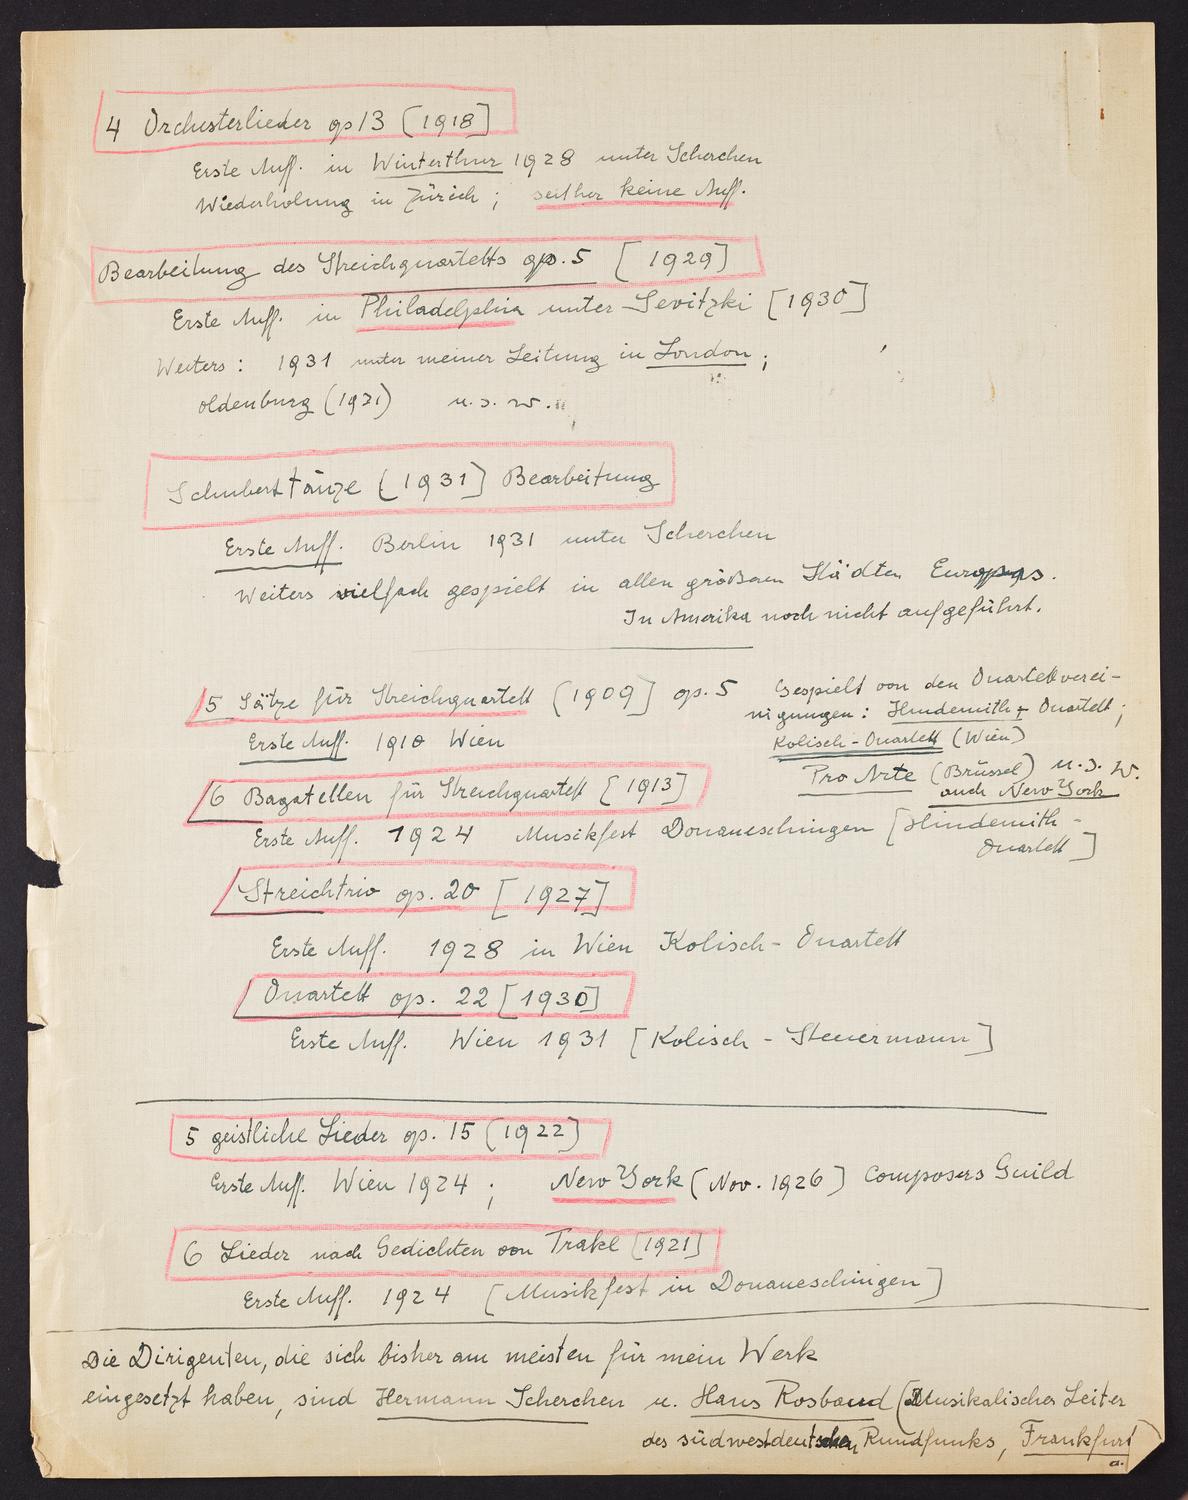 4 Orchesterlieder op 13 [1918]
Erste Auff. in Winterthur 1928 unter Scherchen
Wiederholung in Zürich ; seither keine Auff.
Bearbeitung des Streichquartetts op. 5 [1929]
Erste Auff. in Philadelphia unter Sevitzki [1930]
Weiters : 1931 unter meiner Leitung in London ;
Oldenburg (1931) u. s. w.
Schubert Tänze [1931] Bearbeitung
Erste Auff. Berlin 1931 unter Scherchen
Weiters vielfach gespielt in allen größeren Städten Europas.
In Amerika noch nicht aufgeführt.
5 Sätze für Streichquartett [1909] op. 5
Erste Auff. 1910 Wien
Gespielt von den Quartettverei-
nigungen : Hindemith - Quartett ;
Kolisch - Quartett (Wien)
Pro Arte (Brüssel) u. s. w.
auch New York
6 Bagatellen für Streichquartett [1913]
Erste Auff. 1924 Musikfest Donaueschingen [Hindemith -
Quartett]
Streichtrio op. 20 [1927]
Erste Auff. 1928 in Wien Kolisch - Quartett
Quartett op. 22 [1930]
Erste Auff. Wien 1931 [Kolisch - Steuermann]
5 geistliche Lieder op. 15 [1922]
Erste Auff. Wien 1924 ; New York [Nov. 1926] Composers Guild
6 Lieder nach Gedichten von Trakl [1921]
Erste Auff. 1924 [Musikfest in Donaueschingen]
Die Dirigenten, die sich bisher am meisten für mein Werk
eingesetzt haben, sind Hermann Scherchen u. Hans Rosbaud (Musikalischer Leiter
des südwestdeutschen Rundfunks, Frankfurt
a.